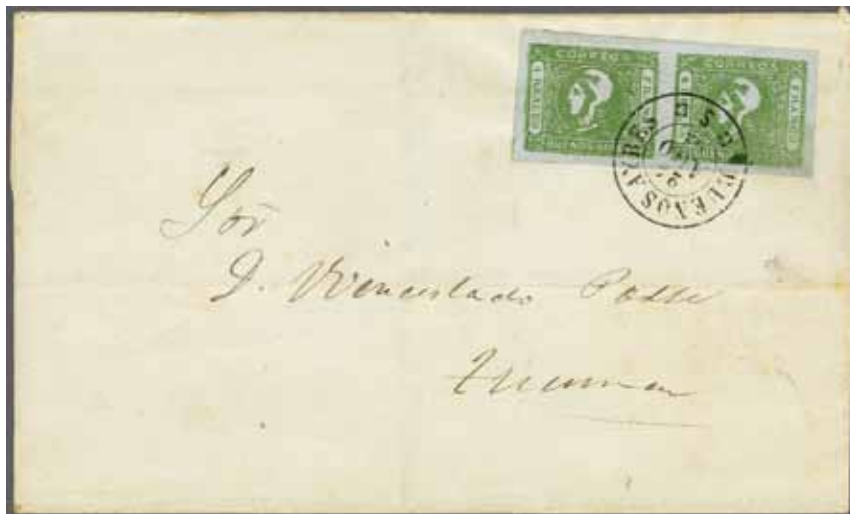 CORREOS CORREOS
BUENOS AIRES
Sor
D. Wenceslado Posse
Tucuman